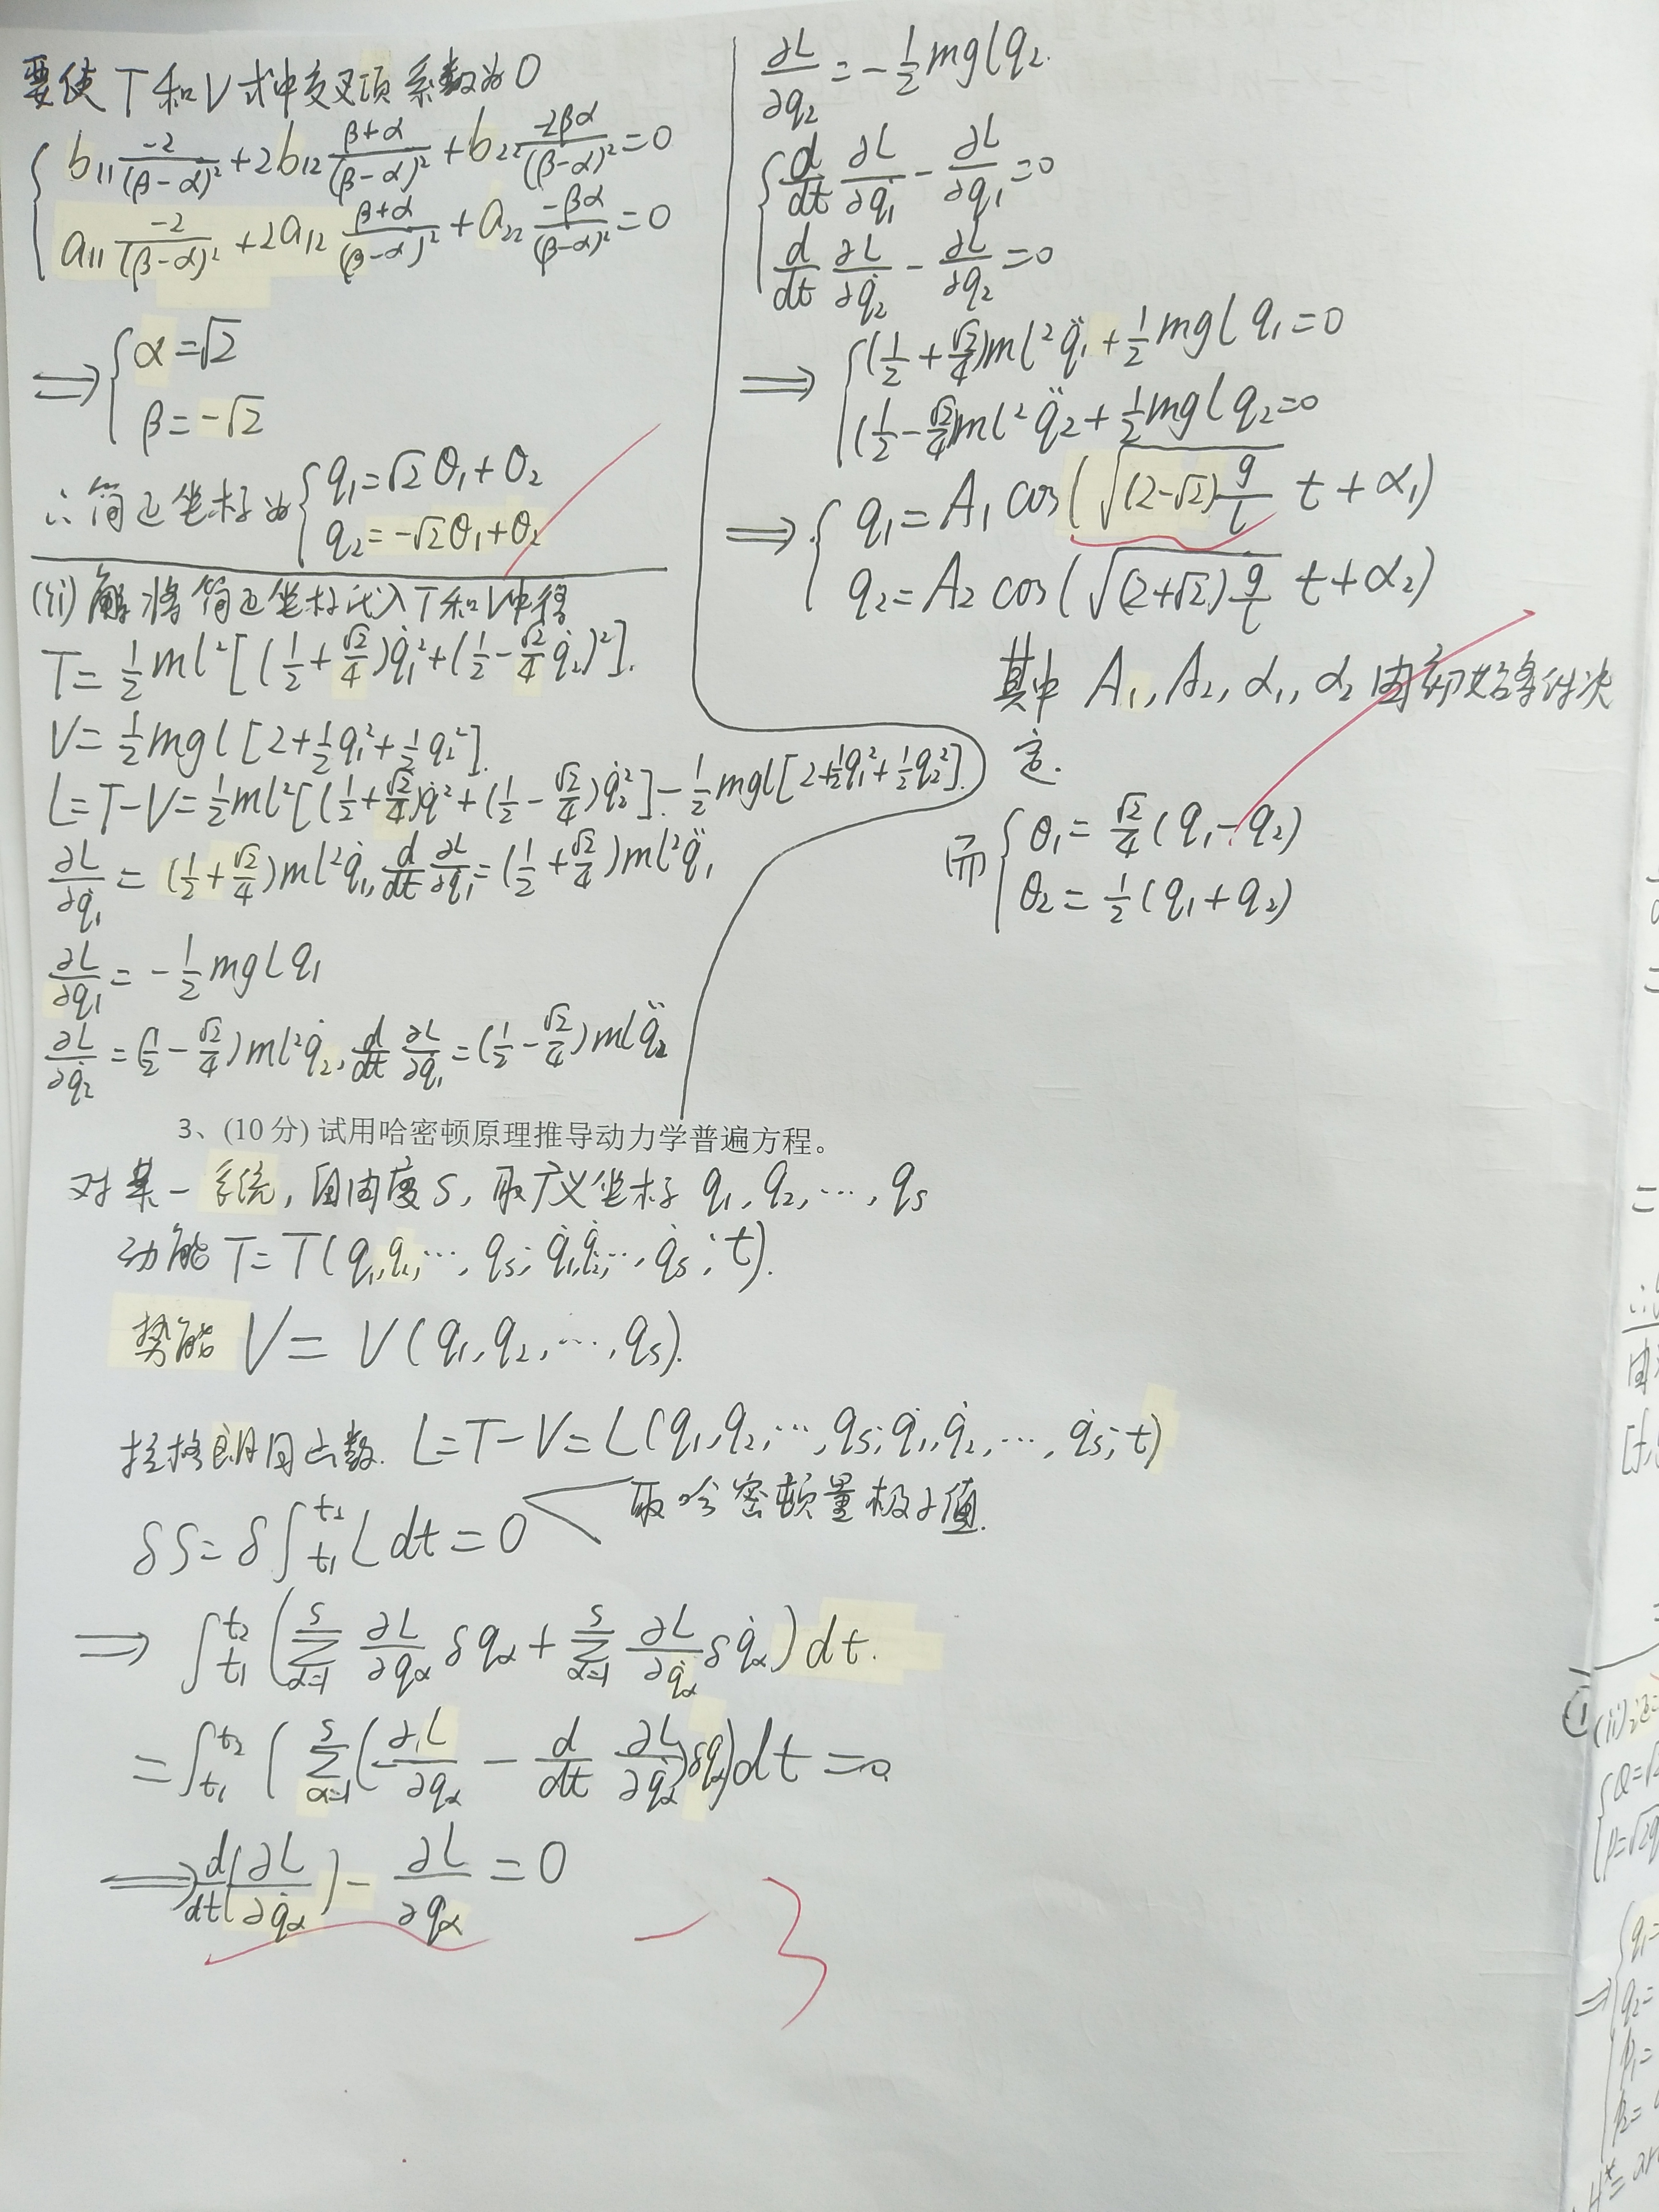 要使T和V式中交叉项系数为0
b₁₁ -2/(β-α)² + 2b₁₂ (β+α)/(β-α)² + b₂₂ -2βα/(β-α)² = 0
a₁₁ -2/(β-α)² + 2a₁₂ (β+α)/(β-α)² + a₂₂ -βα/(β-α)² = 0
⇒ { α=√2
β=-√2
∴简正坐标为 { q₁=√2θ₁+θ₂
q₂=-√2θ₁+θ₂
(ii) 解将简正坐标代入T和V中得
T=½ml²[(½+√2/4)q̇₁²+(½-√2/4 q̇₂)²].
V=½mgl[2+½q₁²+½q₂²].
L=T-V=½ml²[(½+√2/4)q̇²+(½-√2/4)q̇₂²]-½mgl[2+½q₁²+½q₂²].
∂L/∂q̇₁=(½+√2/4)ml²q̇₁, d/dt ∂L/∂q̇₁=(½+√2/4)ml²q̈₁
∂L/∂q₁=-½mglq₁
∂L/∂q̇₂=(½-√2/4)ml²q̇₂, d/dt ∂L/∂q̇₁=(½-√2/4)mlq̈₂
∂L/∂q₂=-½mglq₂.
d/dt ∂L/∂q̇₁ - ∂L/∂q₁=0
d/dt ∂L/∂q̇₂ - ∂L/∂q₂=0
⇒ { (½+√2/4)ml²q̈₁+½mglq₁=0
(½-√2/4)ml²q̈₂+½mglq₂=0
⇒ { q₁=A₁cos(√((2-√2)g/l) t+α₁)
q₂=A₂cos(√((2+√2)g/l) t+α₂)
其中A₁,A₂,α₁,α₂由初始条件决
定.
而 { θ₁=√2/4(q₁-q₂)
θ₂=½(q₁+q₂)
3、(10分) 试用哈密顿原理推导动力学普遍方程。
对某一系统,自由度s,取广义坐标 q₁,q₂,⋯,qs
动能T=T(q₁,q₂,⋯,qs;q̇₁,q̇₂,⋯,q̇s;t).
势能V=V(q₁,q₂,⋯,qs).
拉格朗日函数. L=T-V=L(q₁,q₂,⋯,qs;q̇₁,q̇₂,⋯,q̇s;t)
取哈密顿量极小值.
δS=δ∫_{t₁}^{t₂} L dt=0
⇒ ∫_{t₁}^{t₂} (Σ_{α=1}^{s} ∂L/∂qα δqα+Σ_{α=1}^{s} ∂L/∂q̇α δq̇α)dt.
=∫_{t₁}^{t₂} (Σ_{α=1}^{s} (∂L/∂qα - d/dt ∂L/∂q̇α)δqα)dt=0
⇒ d/dt(∂L/∂q̇α)-∂L/∂qα=0
-3